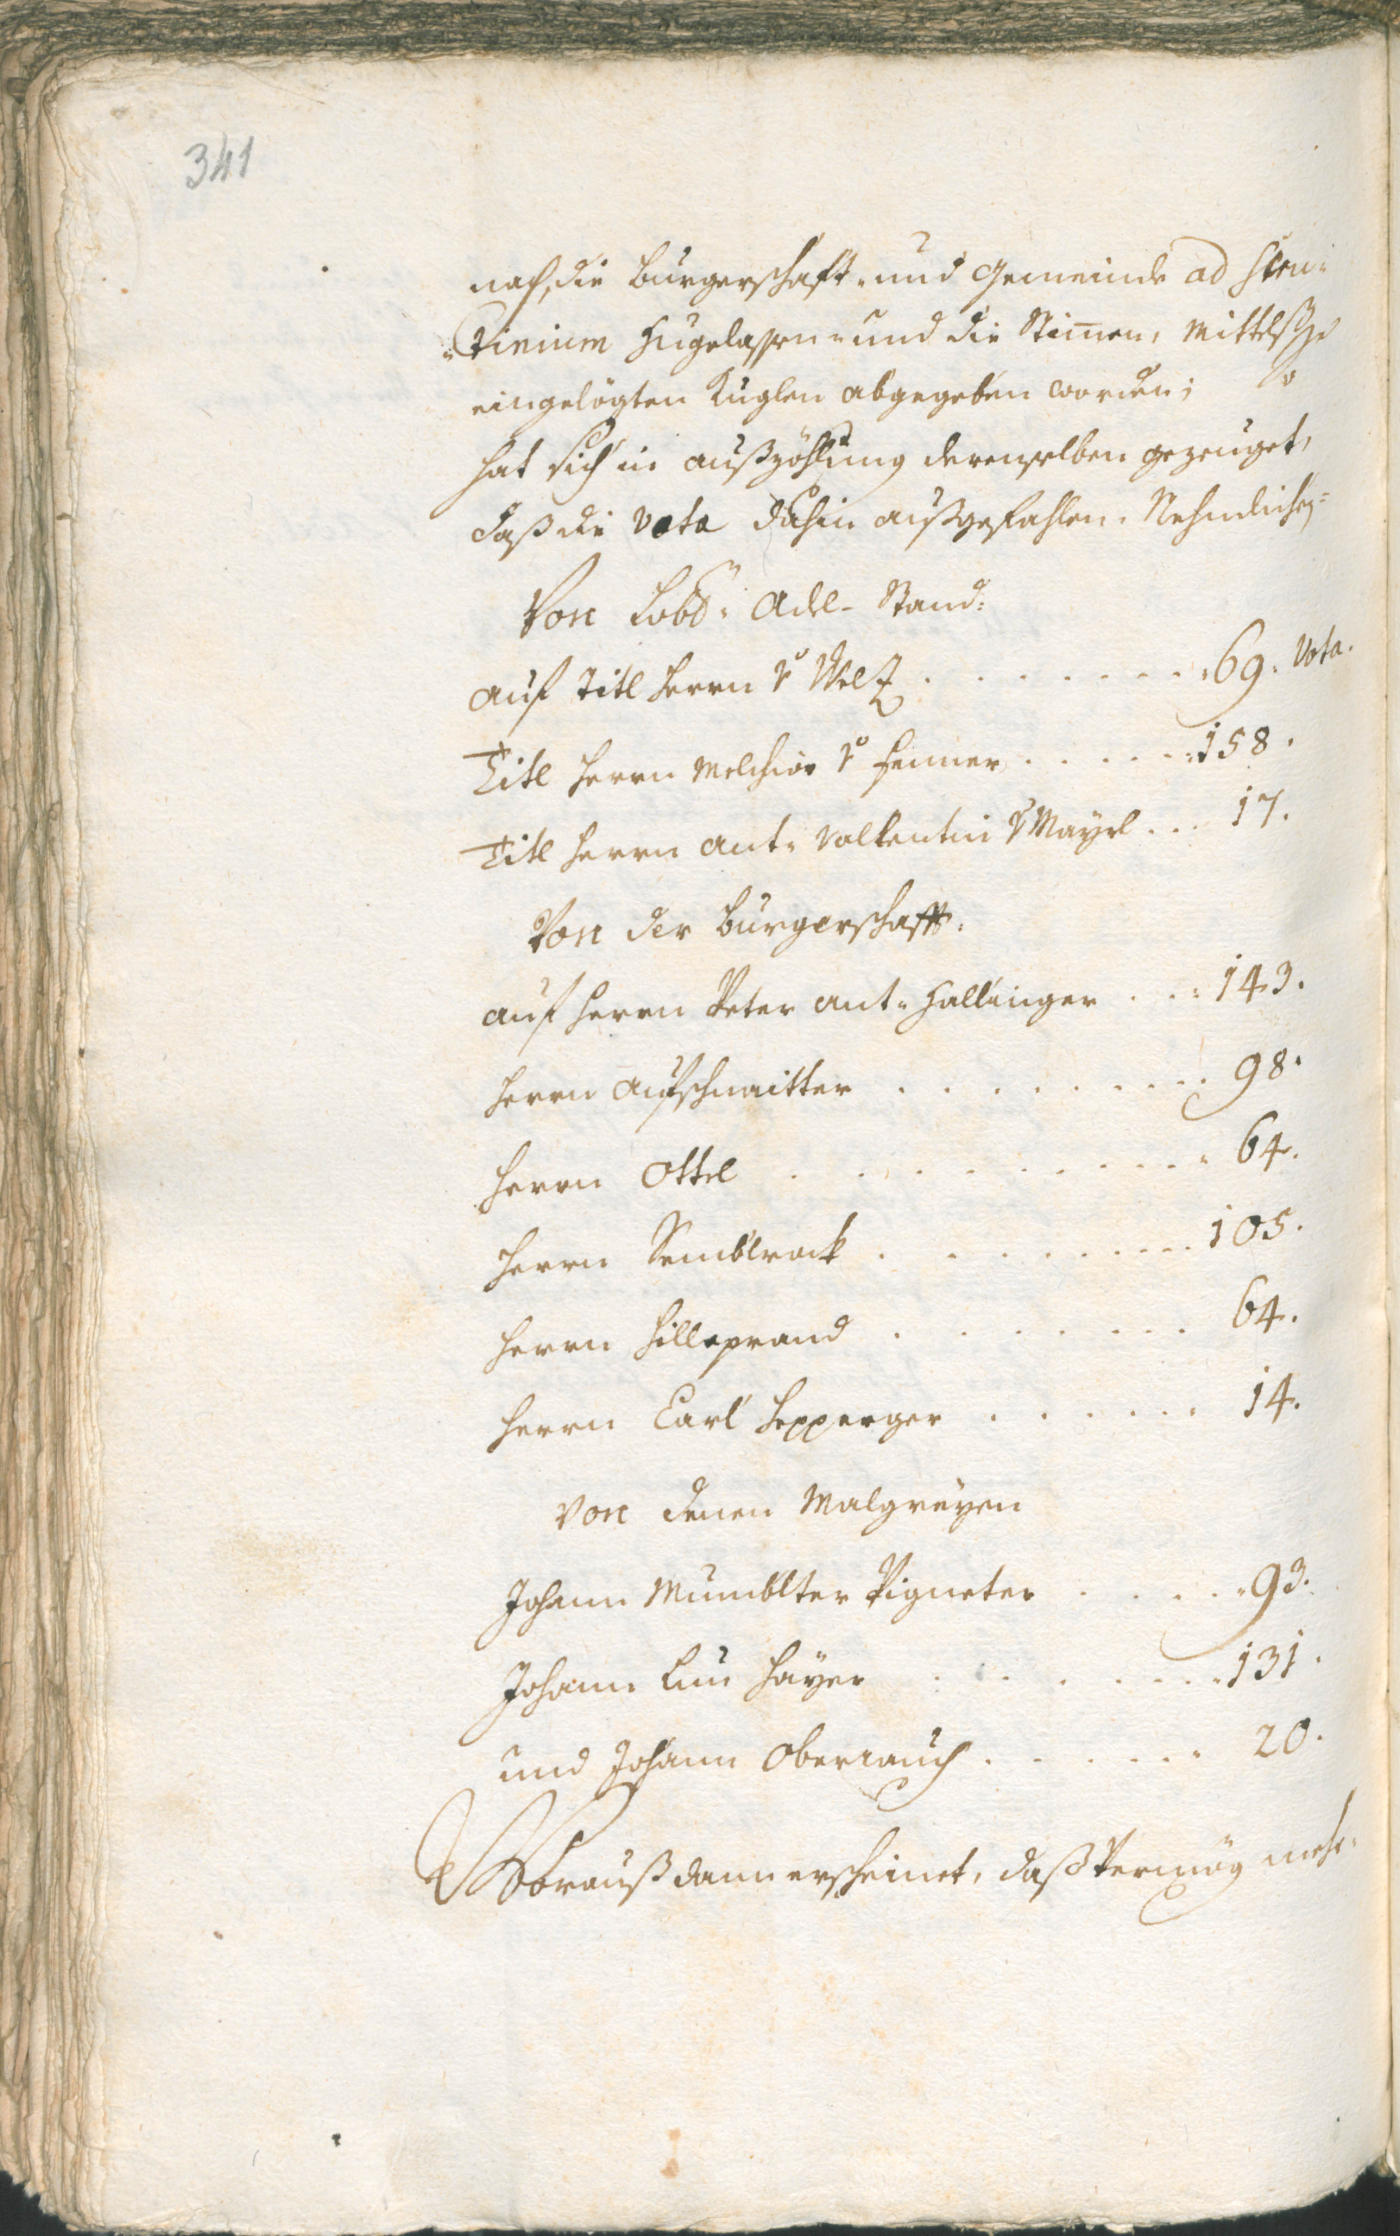 341
nach, die Burgerschafft- und Gemeinde ad scru-
-tinium zugelassen- und die Stim̄en, mittelst
eingelögten Kuglen abgegeben worden; so
hat sich in außzöhlung derenselben gezeuget,
daß die vota dahin außgefahlen. Nehmlichen=
Von Lobd: Adl- Stand:
auf Titl Herrn v Welz . . . . . . . . 69. Vota.
Titl Herrn Melchior v Fenner . . . . . . 158.
Titl Herrn Ant: Vallentin v Mayrl . . . 17.
Von der Burgerschafft.
auf Herrn Peter Ant: Hallinger . . . 143.
Herrn Aufschnaitter . . . . . . . . . 98.
Herrn Ottel . . . . . . . . . . 64.
Herrn Semblrock . . . . . . . . . 105.
Herrn Hilleprand . . . . . . . . 64.
Herrn Carl Hepperger . . . . . . . 14.
Von denen Malgreyen
Johann Mumblter Pigneter . . . . . 93.
Johann Lun Hayer . . . . . . . 131.
und Johann Oberrauch . . . . . . . 20.
Worauß dann erscheinet, daß vermög mehr-